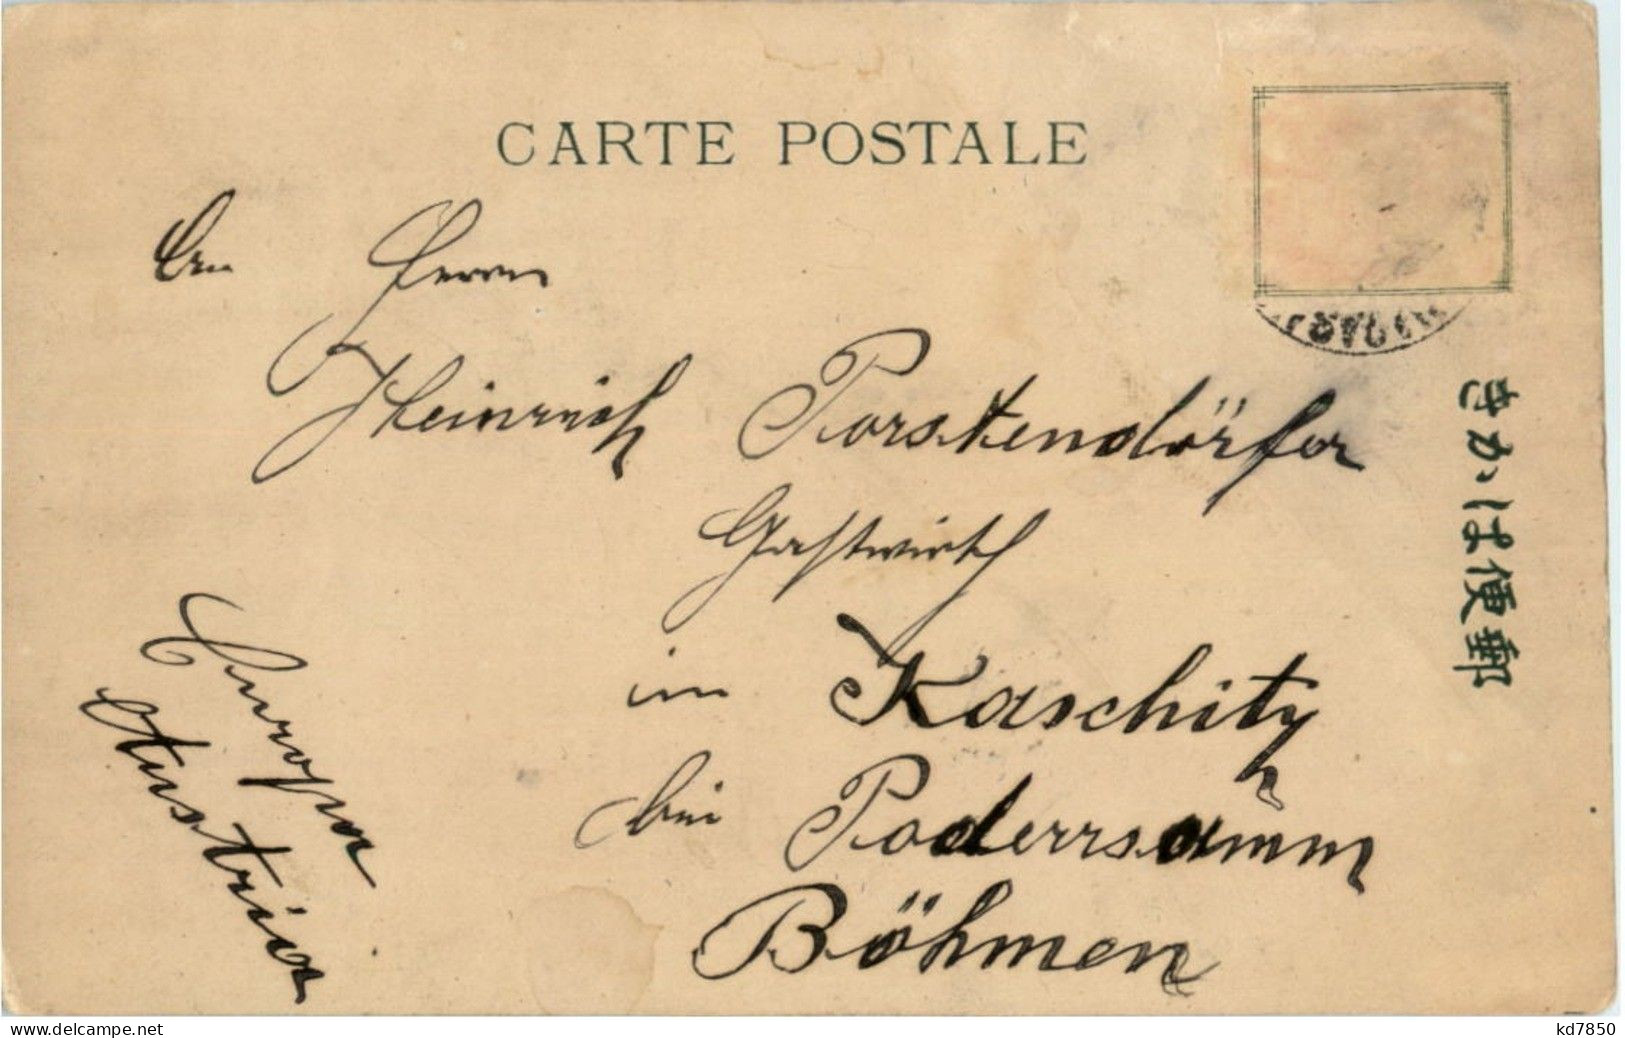 CARTE POSTALE
An Herrn
Heinrich Porstendörfer
Gastwirth
in Kaschitz
bei Poderrsamm
Böhmen
Europa
Austria
きかは便郵
www.delcampe.net
kd7850